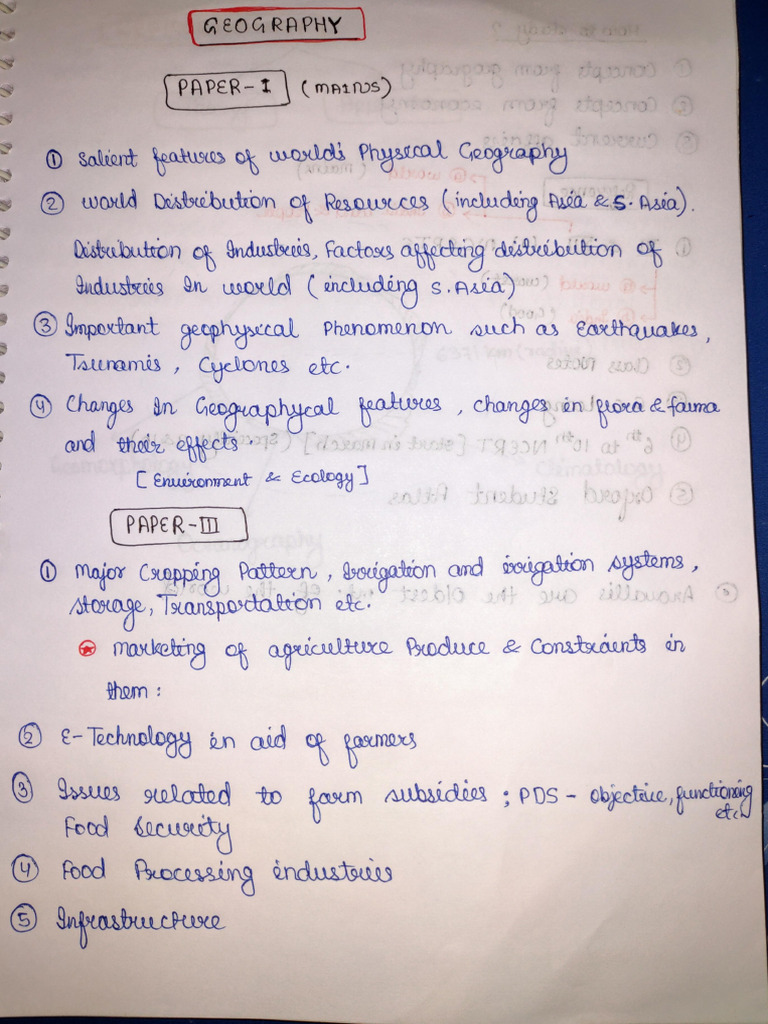 GEOGRAPHY
PAPER-I (MAINS)
① Salient features of world's Physical Geography
② World Distribution of Resources (including Asia & S. Asia).
Distribution of Industries, Factors affecting distribution of
Industries In world (including S. Asia)
③ Important geophysical Phenomenon such as Earthquakes,
Tsunamis, Cyclones etc.
④ Changes In Geographycal features, changes in flora & fauna
and their effects
[Environment & Ecology]
PAPER-III
① Major Cropping Pattern, Irrigation and irrigation systems,
storage, Transportation etc.
⍟ Marketing of agriculture Produce & Constraints in
them:
② E-Technology in aid of farmers
③ Issues related to farm subsidies; PDS - objective, functioning
etc.
Food Security
④ Food Processing industries
⑤ Infrastructure